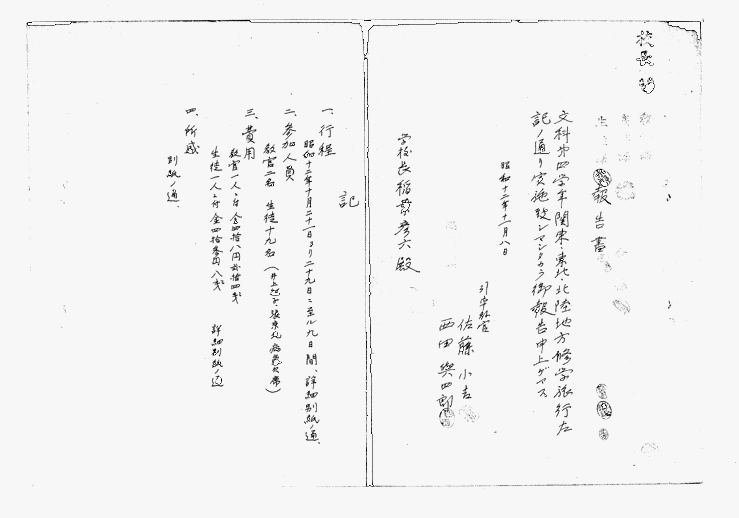 校長
報告書
文科第四学年関東・東北・北陸地方修学旅行左
記ノ通リ実施致シマシタカラ御報告申上ゲマス
昭和十二年十一月八日
引率教官
佐藤小吉
西田與四郎
学校長稲葉彦六殿
記
一、行程
昭和十二年十月二十一日ヨリ二十九日ニ至ル九日間、詳細別紙ノ通、
二、参加人員
教官二名 生徒十九名
三、費用
教官一人ニ付金四拾八円拾四銭
生徒一人ニ付金四拾参円八銭 詳細別紙ノ通
四、所感
別紙ノ通、